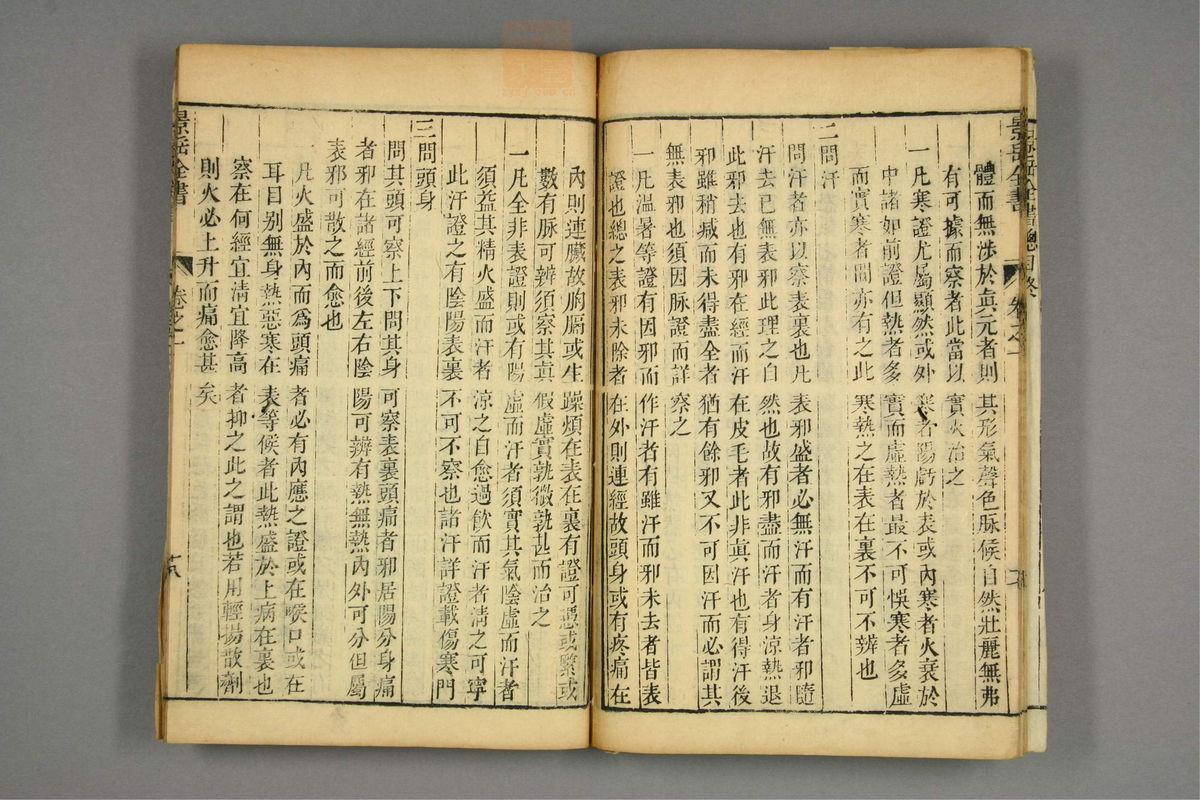 景岳全書總目終
景岳全書 卷之一
體而無涉於眞元者則其形氣聲色脉候自然壯麗無弗
有可據而察者此當以實火治之
一凡寒證尤屬顯然或外寒者陽虧於表或內寒者火衰於
中諸如前證但熱者多實而虛熱者最不可悞寒者多虛
而實寒者間亦有之此寒熱之在表在裏不可不辨也
二問汗
問汗者亦以察表裏也凡表邪盛者必無汗而有汗者邪隨
汗去已無表邪此理之自然也故有邪盡而汗者身涼熱退
此邪去也有邪在經而汗在皮毛者此非眞汗也有得汗後
邪雖稍減而未得盡全者猶有餘邪又不可因汗而必謂其
無表邪也須因脉證而詳察之
一凡溫暑等證有因邪而作汗者有雖汗而邪未去者皆表
證也總之表邪未除者在外則連經故頭身或有疼痛在
內則連臟故胸膈或生躁煩在表在裏有證可憑或緊或
數有脉可辨須察其眞假虛實孰微孰甚而治之
一凡全非表證則或有陽虛而汗者須實其氣陰虛而汗者
須益其精火盛而汗者涼之自愈過飲而汗者淸之可寧
此汗證之有陰陽表裏不可不察也諸汗詳證載傷寒門
三問頭身
問其頭可察上下問其身可察表裏頭痛者邪居陽分身痛
者邪在諸經前後左右陰陽可辨有熱無熱內外可分但屬
表邪可散之而愈也
一凡火盛於內而爲頭痛者必有內應之證或在喉口或在
耳目别無身熱惡寒在表等候者此熱盛於上病在裏也
察在何經宜淸宜降高者抑之此之謂也若用輕揚散劑
則火必上升而痛愈甚矣
景岳全書 卷之一 十八